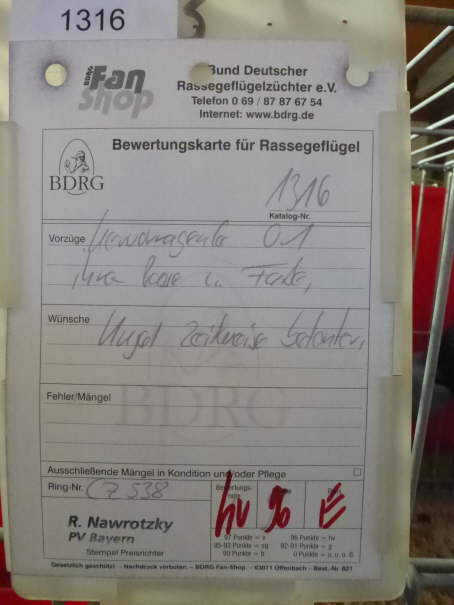 1316
BDRG
Fan
Shop
Bund Deutscher
Rassegeflügelzüchter e.V.
Telefon 0 69 / 87 87 67 54
Internet: www.bdrg.de
Bewertungskarte für Rassegeflügel
BDRG
1316
Katalog-Nr.
Vorzüge Hervorragende 0.1
in Form u. Farbe,
Wünsche
Flügel zeitweise betonter,
Fehler/Mängel
BDRG
Ausschließende Mängel in Kondition und/oder Pflege
Ring-Nr. CZ 538
hv 96 E
R. Nawrotzky
PV Bayern
Stempel Preisrichter
97 Punkte = v 96 Punkte = hv
95-93 Punkte = sg 92-91 Punkte = g
90 Punkte = b 0 Punkte = u, o. G
Gesetzlich geschützt - Nachdruck verboten. - BDRG Fan-Shop - 63071 Offenbach - Best.-Nr. 821